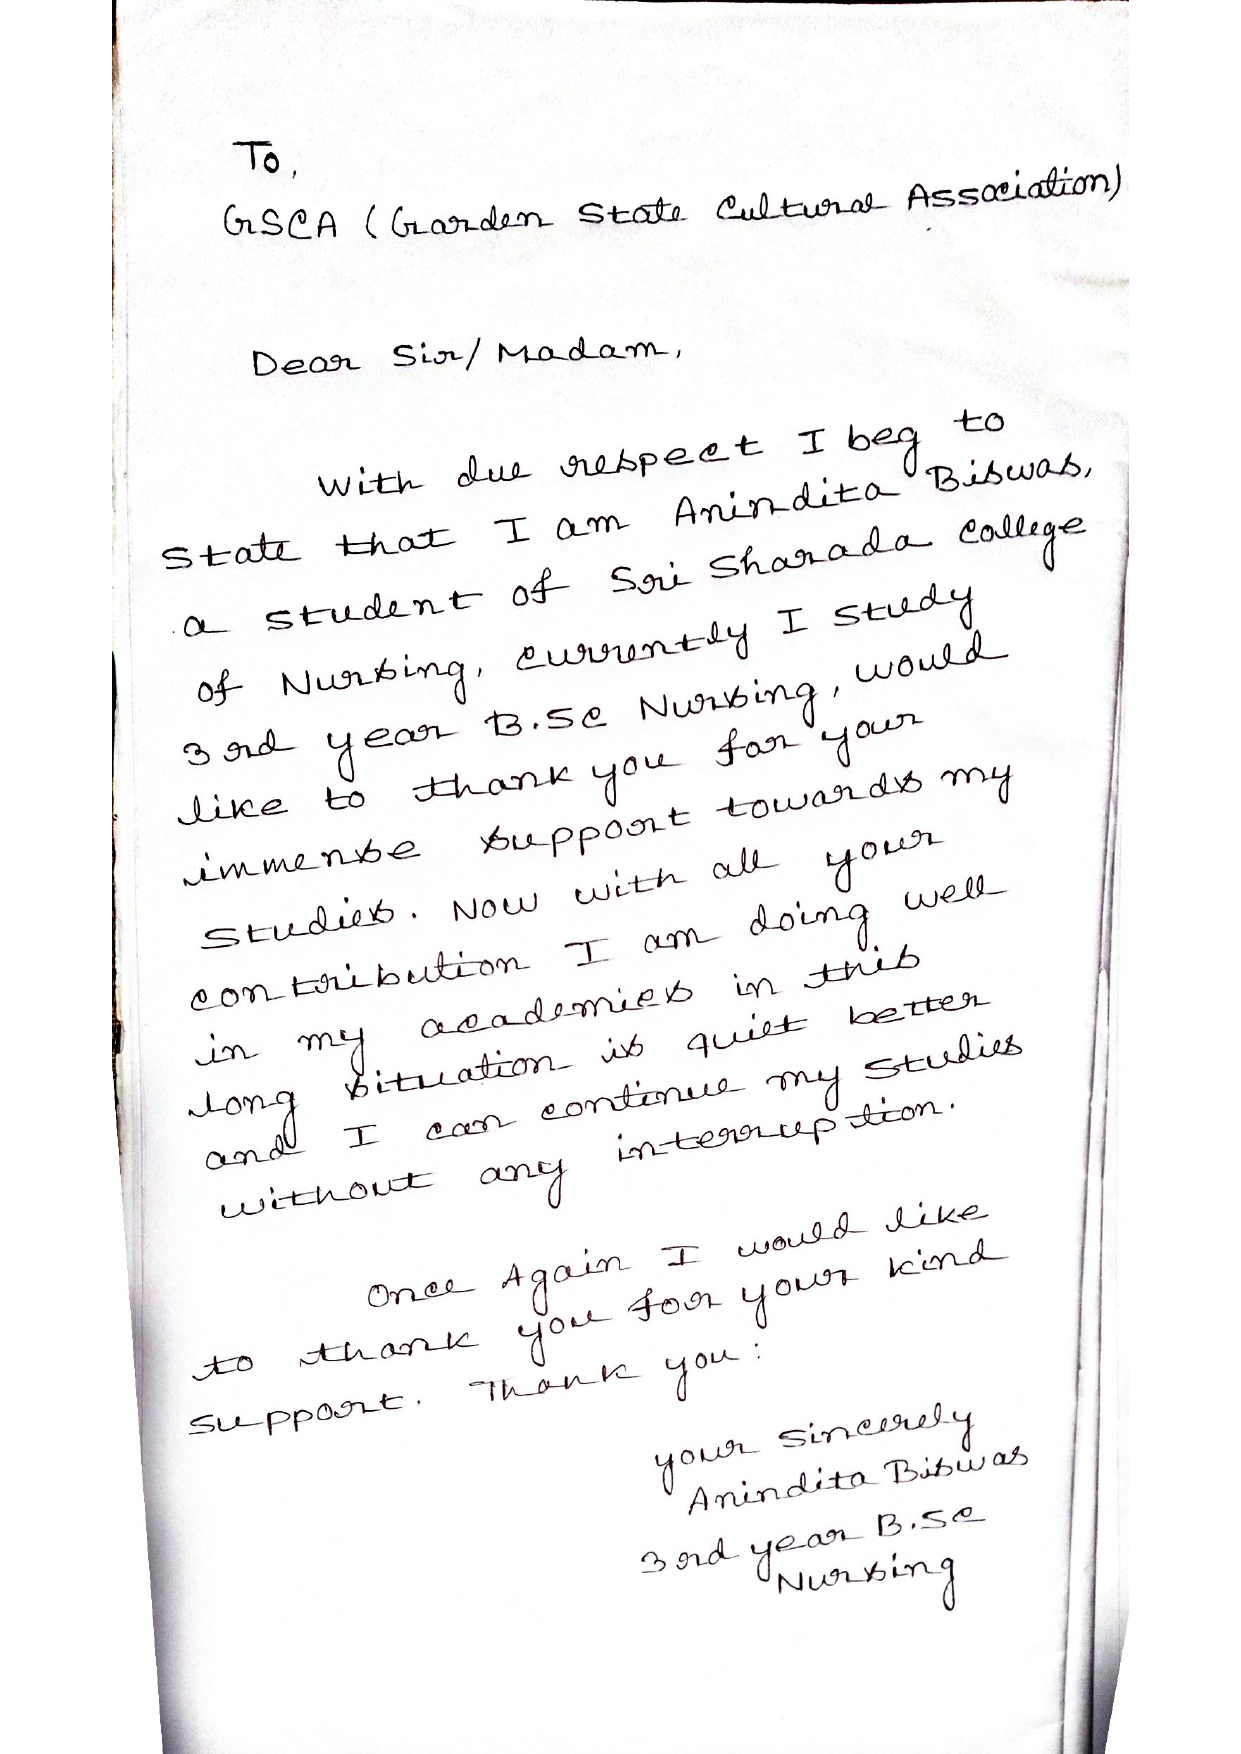 To,
GSCA (Garden State Cultural Association)
Dear Sir/Madam,
With due respect I beg to
state that I am Anindita Biswas,
a student of Sri Sharada College
of Nursing, currently I study
3rd year B.Sc Nursing, would
like to thank you for your
immense support towards my
studies. Now with all your
contribution I am doing well
in my academics in this
long situation is quiet better
and I can continue my studies
without any interruption.
Once Again I would like
to thank you for your kind
support. Thank you:
your sincerely
Anindita Biswas
3rd year B.Sc
Nursing